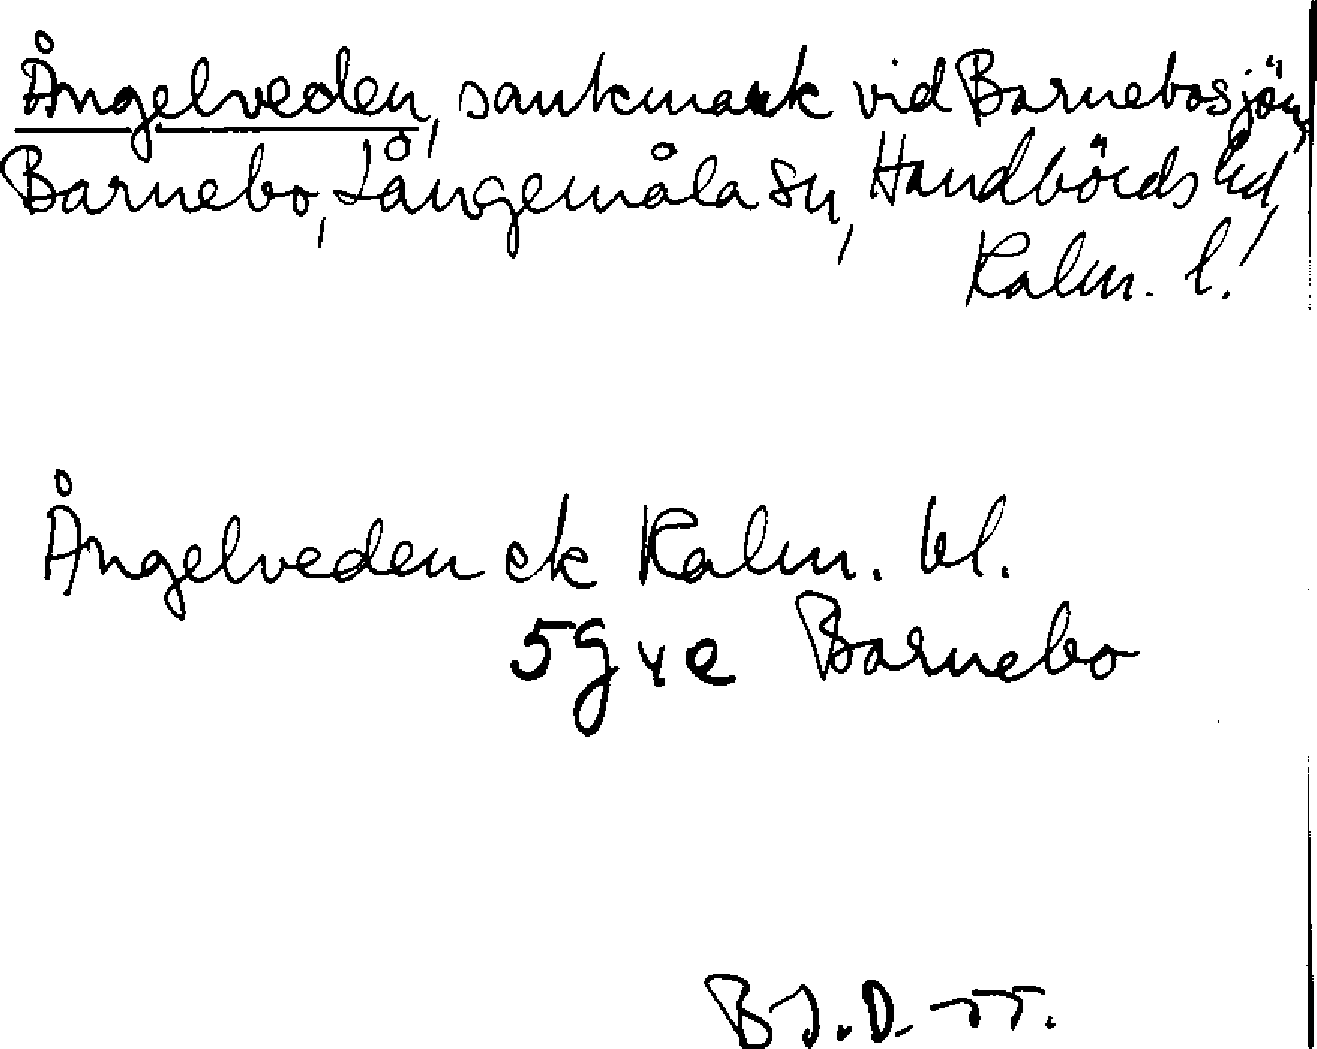 Ångelveden, sankmark vid Barnebosjön,
Barnebo, Långemåla sn, Handbörds hd,
Kalm. l.
Ångelveden ek Kalm. bl.
5g ve Barnebo